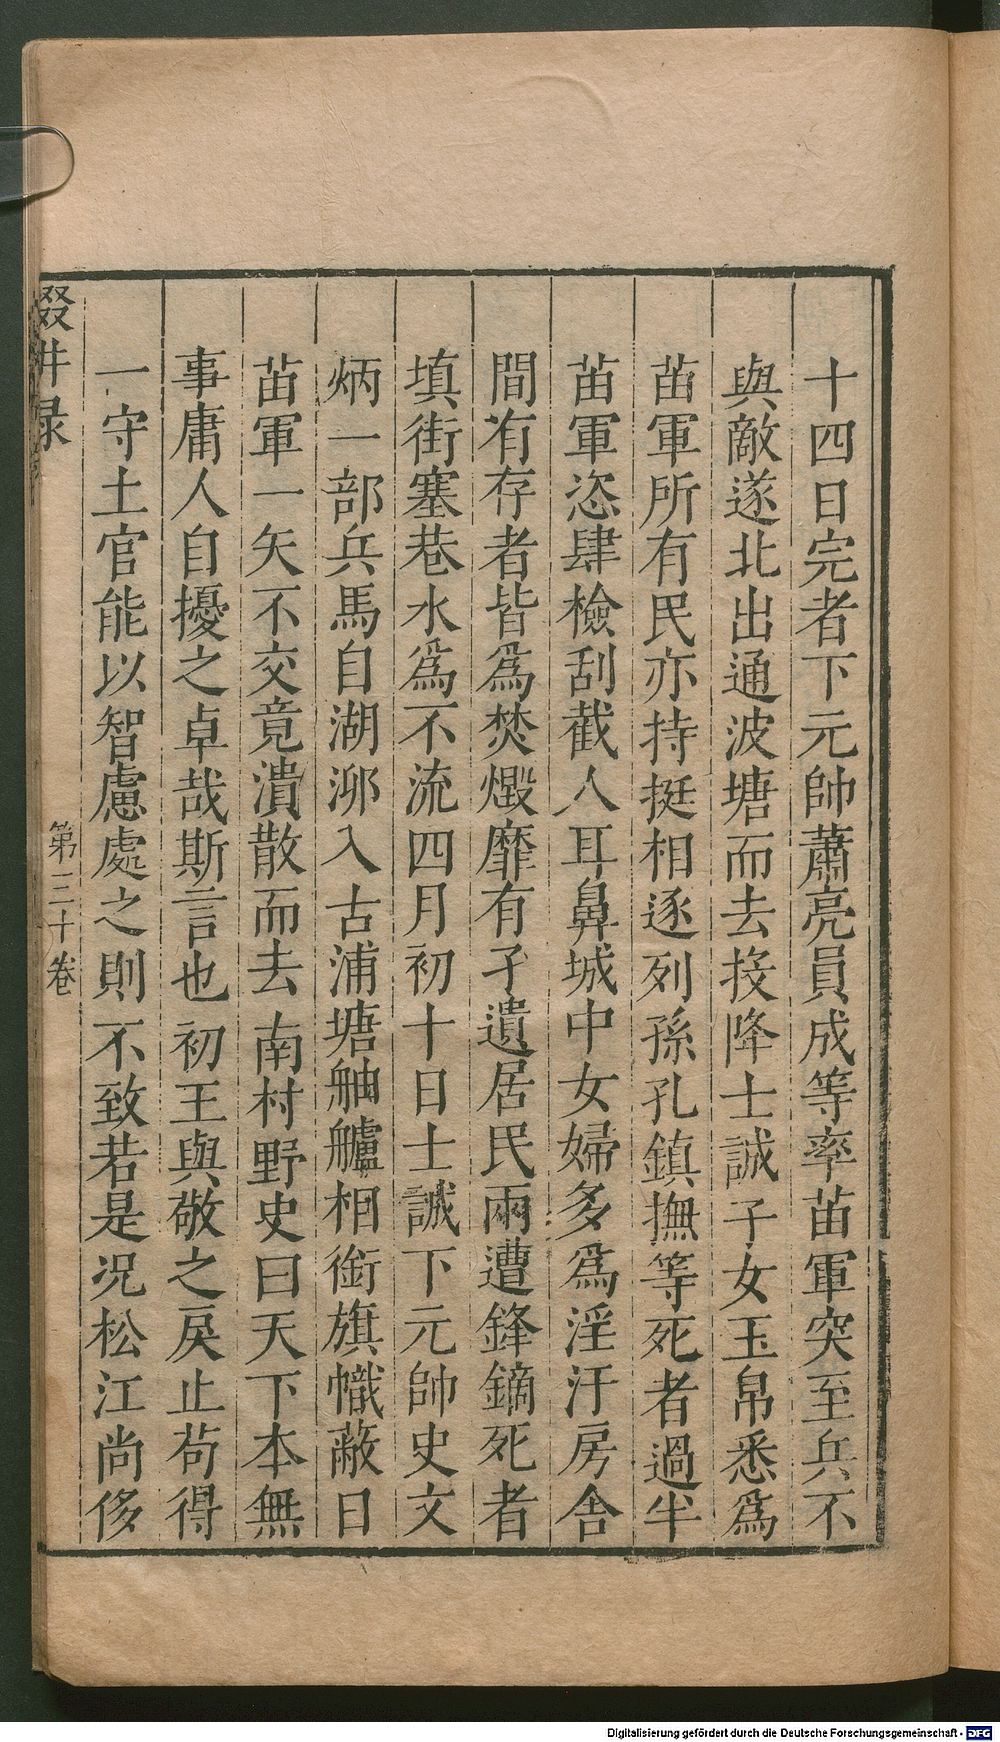 十四日完者下元帥蕭亮員成等率苗軍突至兵不
與敵遂北出通波塘而去接降士誠子女玉帛悉爲
苗軍所有民亦持挺相逐列孫孔鎮撫等死者過半
苗軍恣肆檢刮截人耳鼻城中女婦多爲淫汙房舍
間有存者皆爲焚燬靡有孑遺居民兩遭鋒鏑死者
填街塞巷水爲不流四月初十日士誠下元帥史文
炳一部兵馬自湖泖入古浦塘舳艫相銜旗幟蔽日
苗軍一矢不交竟潰散而去南村野史曰天下本無
事庸人自擾之卓哉斯言也初王與敬之戾止苟得
一守土官能以智慮處之則不致若是况松江尚侈
輟畊录
第三十卷
Digitalisierung gefördert durch die Deutsche Forschungsgemeinschaft - DFG